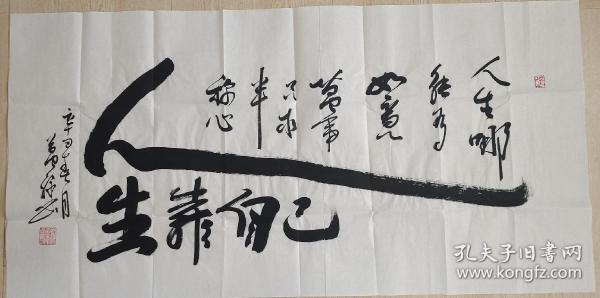 人生哪
能多
如意
萬事
只求
半
称心
人
生靠自己
辛丑春月
孔夫子旧书网
www.kongfz.com